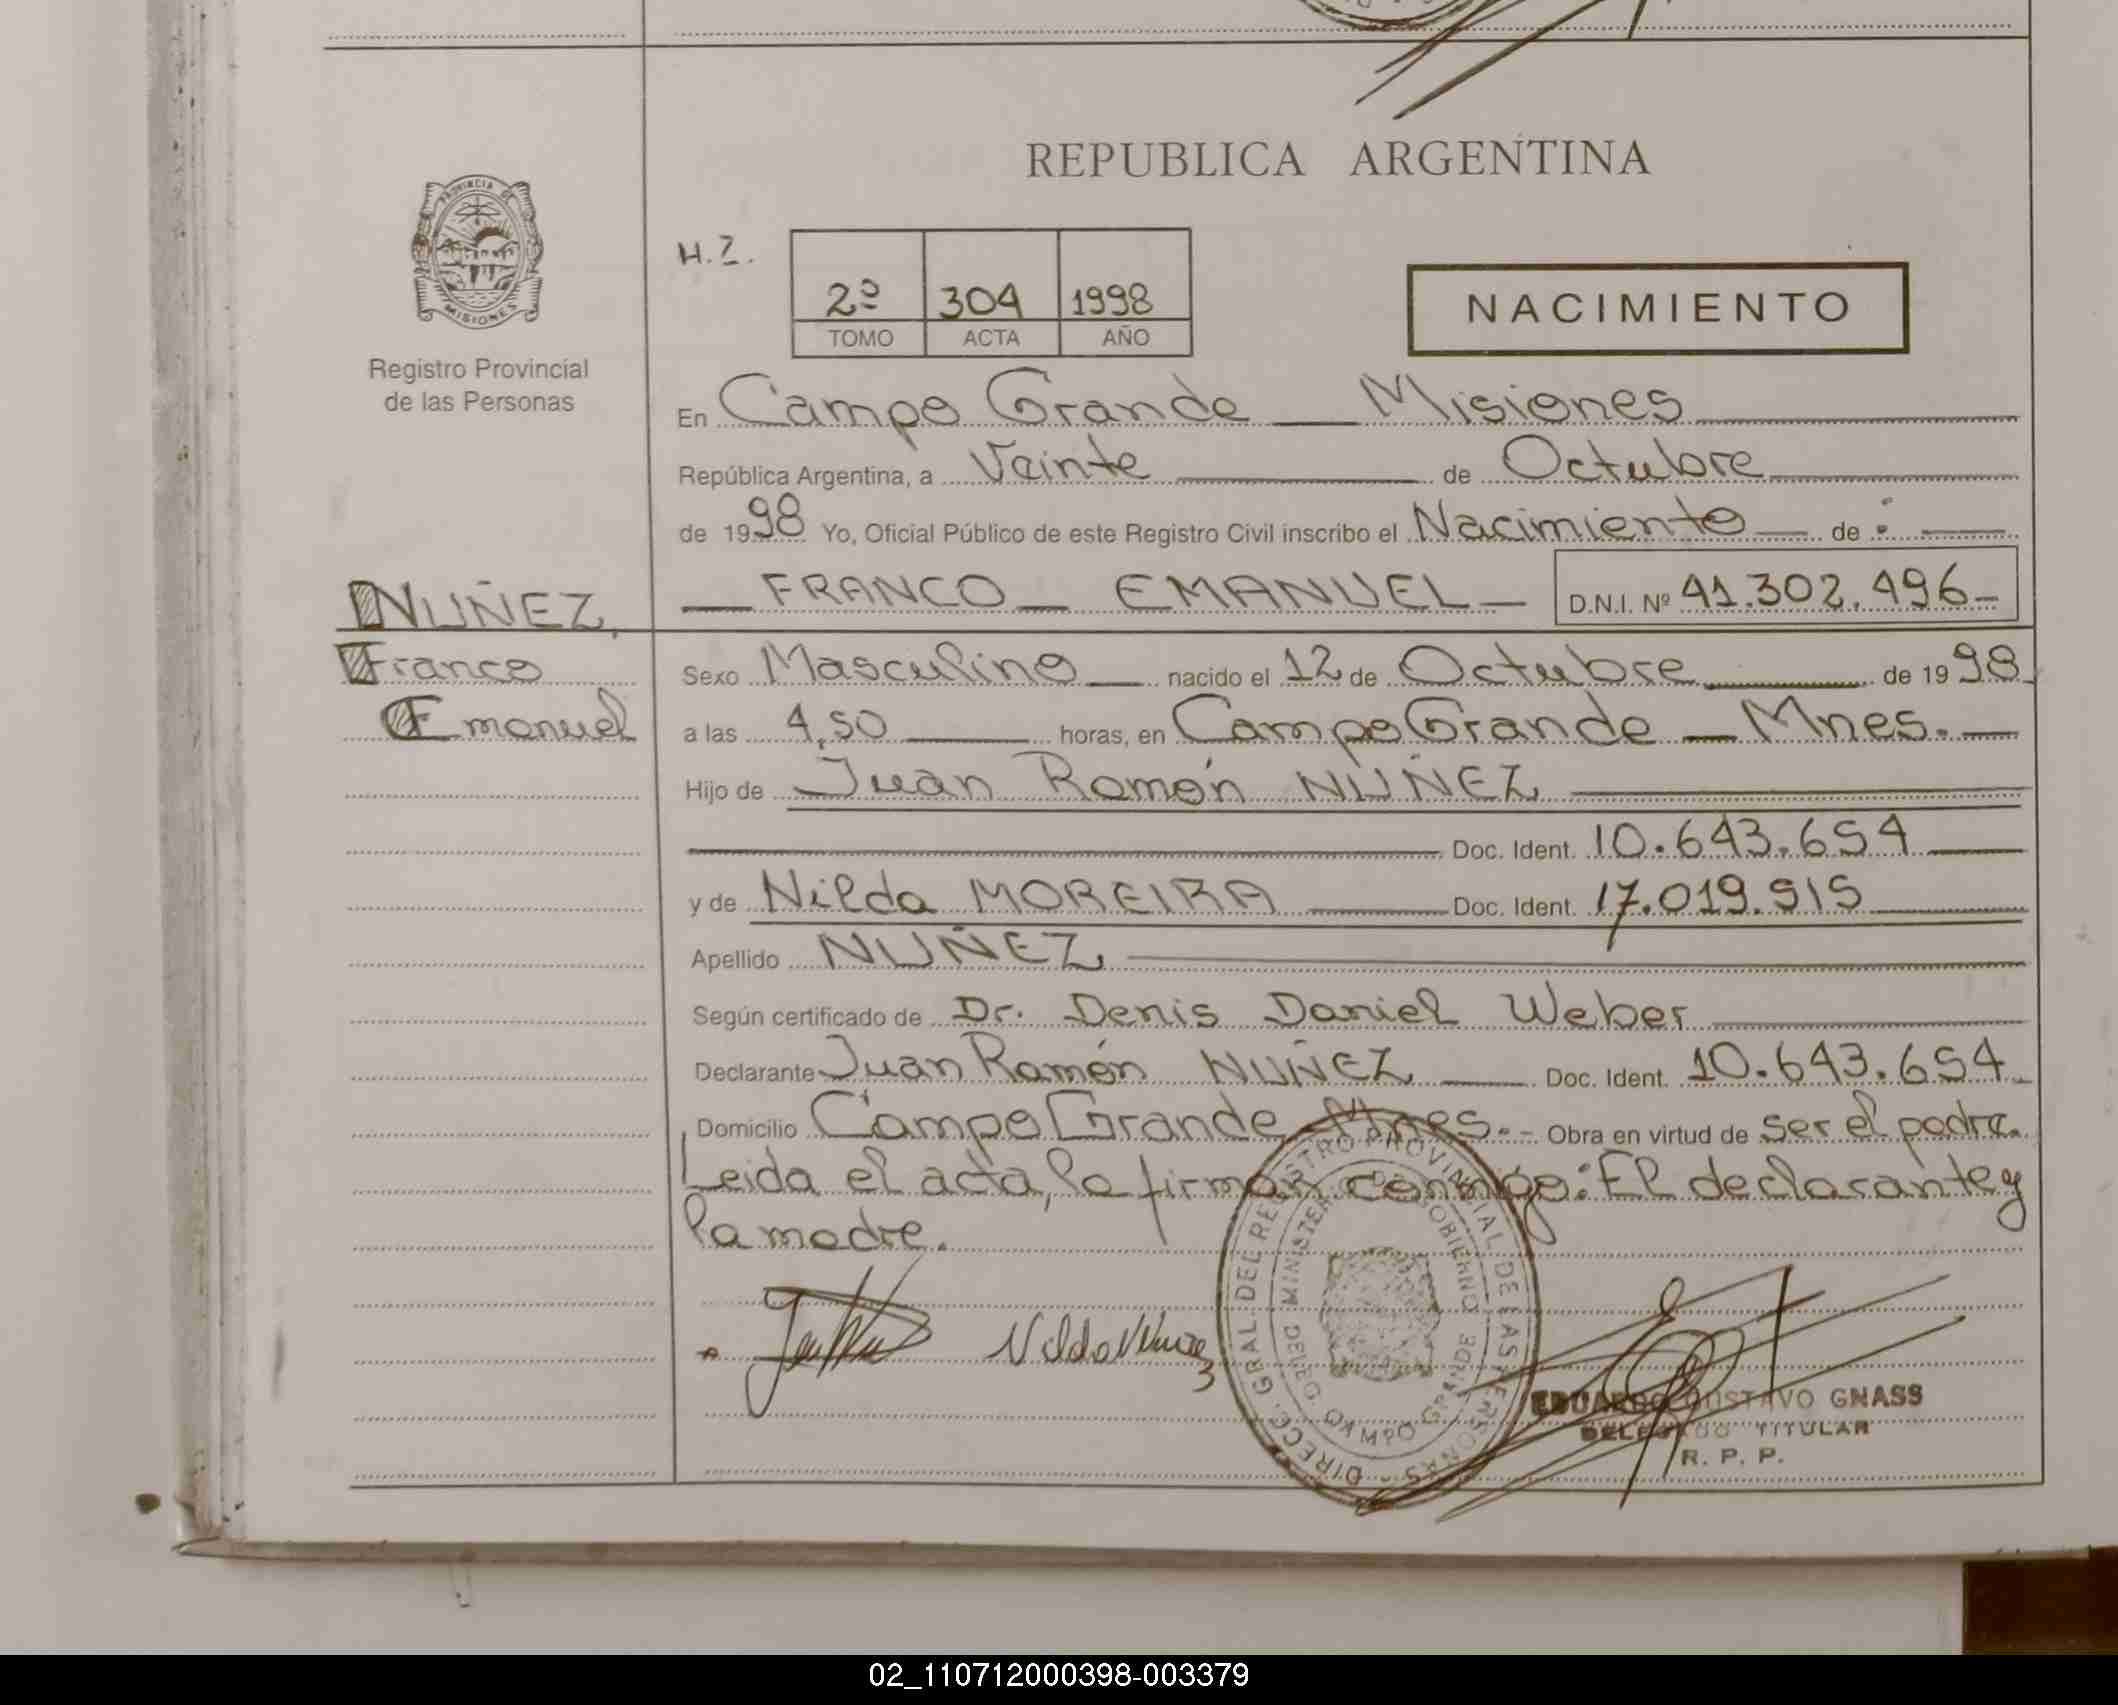 REPUBLICA ARGENTINA
PROVINCIA DE MISIONES
Registro Provincial
de las Personas
H.Z.
2º 304 1998
TOMO ACTA AÑO
NACIMIENTO
En Campo Grande Misiones
República Argentina, a Veinte de Octubre
de 1998 Yo, Oficial Público de este Registro Civil inscribo el Nacimiento de :
NUÑEZ, FRANCO EMANUEL D.N.I. Nº 41.302.496
Franco Sexo Masculino nacido el 12 de Octubre de 1998
Emanuel a las 4,50 horas, en Campo Grande Mnes.
Hijo de Juan Ramón NUÑEZ
Doc. Ident. 10.643.654
y de Nilda MOREIRA Doc. Ident. 17.019.515
Apellido NUÑEZ
Según certificado de Dr. Denis Daniel Weber
Declarante Juan Ramón NUÑEZ Doc. Ident. 10.643.654
Domicilio Campo Grande, Mnes. Obra en virtud de ser el padre.
Leida el acta, la firman conmigo: El declarante y
la madre.
Nilda
DIRECC. GRAL. DEL REGISTRO PROVINCIAL DE LAS PERSONAS
MINISTERIO DE GOBIERNO
DELEG. CAMPO GRANDE
EDUARDO GUSTAVO GNASS
DELEGADO TITULAR
R. P. P.
02_110712000398-003379